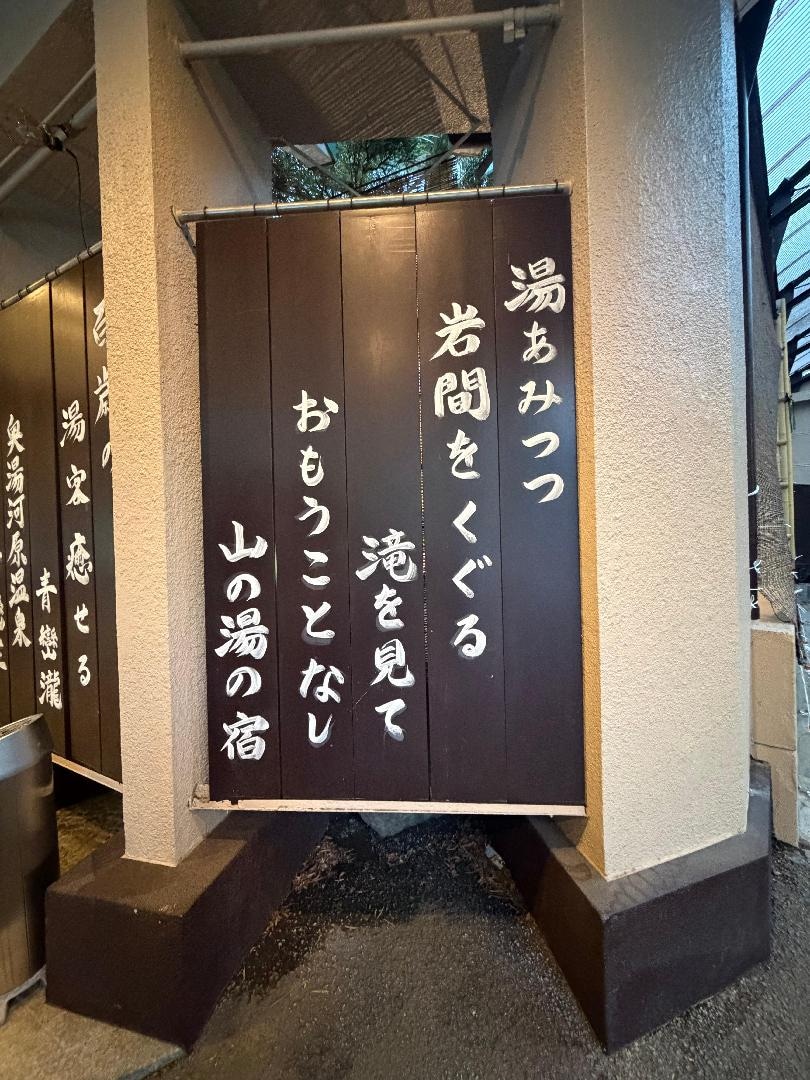 湯あみつつ
岩間をくぐる
滝を見て
おもうことなし
山の湯の宿
百歳の
湯客癒せる
青巒瀧
奥湯河原温泉